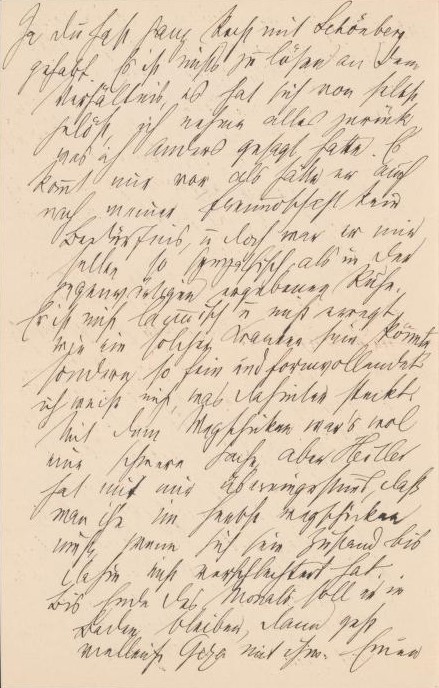 Ja du hast ganz Recht mit Schönberg
gehabt. Es ist nichts zu lösen an dem
Verhältnis, es hat sich von selbst
gelöst, ich nehme alles zurück
was ich anders gesagt hatte. Es
kommt mir vor als hätte er auch
nach meiner Freundschaft kein
Bedürfnis, u doch war er mir
selten so sympathisch, als in der
gegenwärtigen ergebenen Ruhe.
Er ist nicht u nicht erregt,
wie ein solcher Kranker sein könnte
sondern so fein und formvollendet
ich weiss nicht, was dahinter steckt.
Mit dem Wegschicken wär's wol
eine schwere Sache, aber Heller
hat mit mir übereingestimmt, dass
man ihn im Herbst wegschicken
muss, wenn sich sein Zustand bis
dahin nicht verschlechtert hat.
Bis Ende des Monats soll er in
Baden bleiben, dann geht
vielleicht mit ihm. Einen